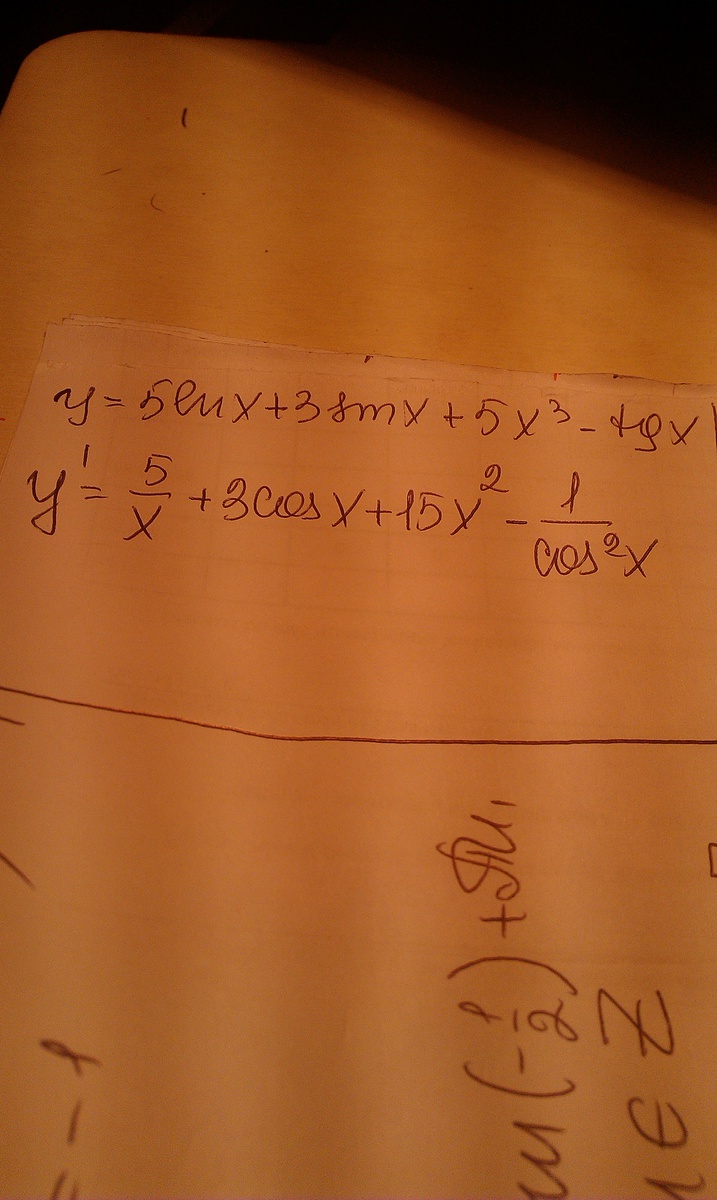 y = 5lnx + 3sinx + 5x³ - tgx
y' = 5/x + 3cosx + 15x² - 1/cos²x
(-1/2) + πn,
n ∈ Z
= -1